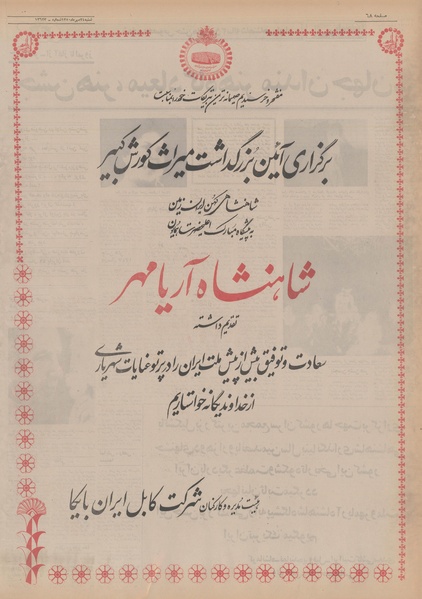 صفحه ۶۸
مفتخر و خرسندیم صمیمانه‌ترین تبریکات خود را بمناسبت
برگزاری آئین بزرگداشت میراث کورش کبیر
شاهنشاهی کهن ایران زمین
به پیشگاه مبارک اعلیحضرت همایون
شاهنشاه آریامهر
تقدیم داشته
سعادت و توفیق بیش از پیش ملت ایران را در پرتو عنایات شهریاری
از خداوند یگانه خواستاریم
هیئت مدیره و کارکنان شرکت کابل ایران بایکا